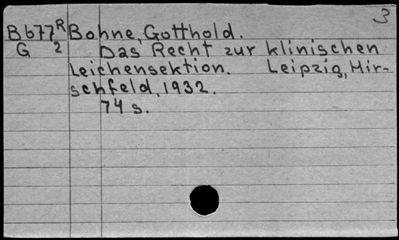 3
B677R Bohne, Gotthold.
G 2 Das Recht zur klinischen
Leichensektion. Leipzig, Hir-
schfeld, 1932.
74 s.